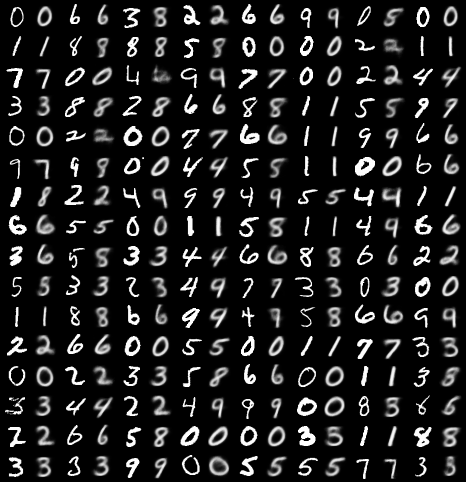 0 0 6 6 3 8 2 2 6 6 9 9 0 5 0 0
1 1 8 8 8 8 5 8 0 0 0 0 2 2 1 1
7 7 0 0 4 6 9 9 7 7 0 0 2 2 4 4
3 3 8 8 2 8 6 6 8 8 1 1 5 5 9 9
0 0 2 2 0 0 7 7 6 6 1 1 9 9 6 6
9 7 9 8 0 0 4 4 5 5 1 1 0 0 6 6
1 8 2 2 4 9 9 9 4 9 5 5 4 4 1 1
6 6 5 5 0 0 1 1 5 8 1 1 4 9 6 6
3 6 5 8 3 3 4 4 6 6 8 8 6 6 2 2
5 5 3 3 2 3 4 9 7 7 3 3 0 3 0 0
1 1 8 8 6 6 9 9 4 9 5 8 6 6 9 9
2 2 6 6 0 0 5 5 0 0 1 1 9 7 3 3
0 0 2 2 3 3 5 8 6 6 0 0 1 1 3 8
3 3 4 4 2 2 4 9 9 9 0 0 8 3 8 6
2 2 6 6 5 8 0 0 0 0 3 3 1 1 8 8
3 3 3 3 9 9 0 0 5 5 5 5 7 7 3 3